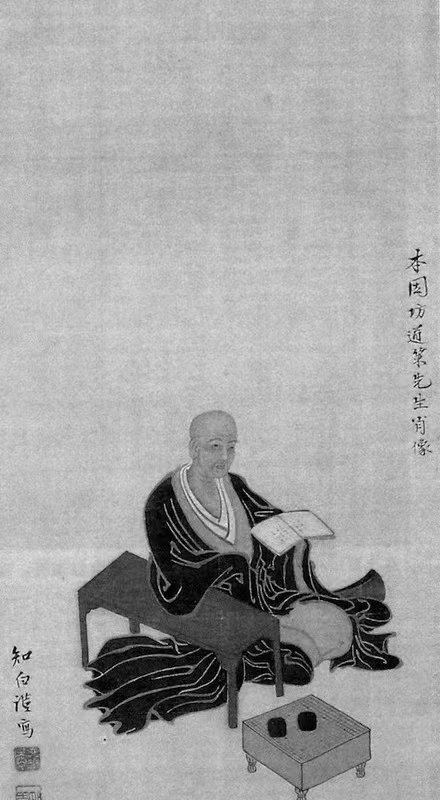 本因坊道策先生肖像
知白謹寫